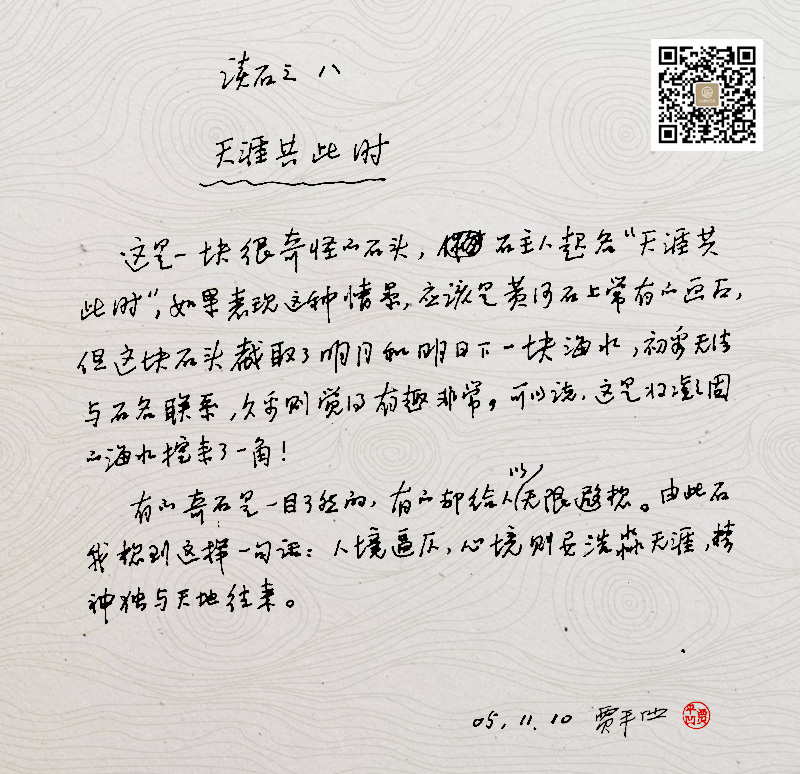 读石之八
天涯共此时
这是一块很奇怪的石头，石主人起名“天涯共
此时”，如果表现这种情景，应该是黄河石上常有的画面，
但这块石头截取了明月和明日下一块海水，初看无法
与石名联系，久看则觉得有趣非常。可以说，这是将凝固
的海水挖来了一角！
有的奇石是一目了然的，有的却给人以无限遐想。由此石
我想到这样一句话：人境逼仄，心境则要浩淼天涯，精
神独与天地往来。
05.11.10 贾平凹
贾平凹